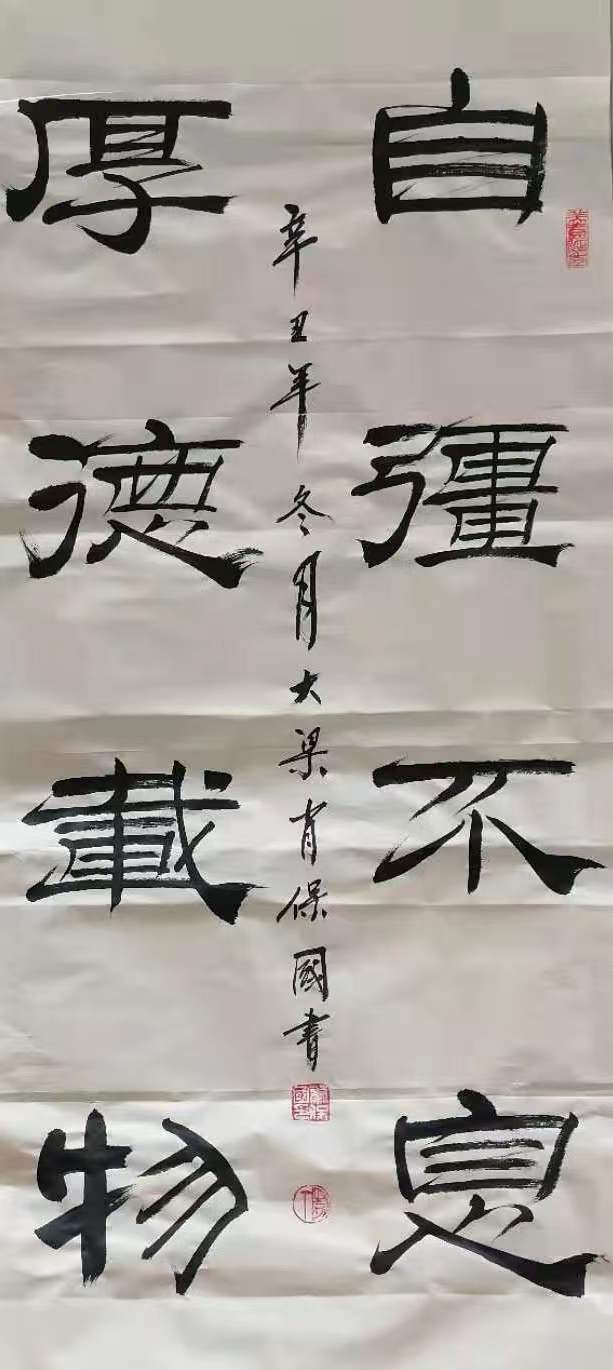 自彊不息
厚德載物
辛丑年冬月大梁肖保國書